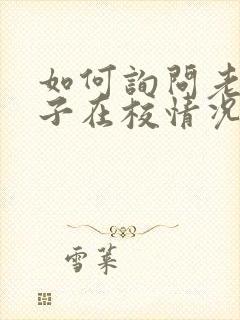 如何詢問老
子在校情況
雪萊